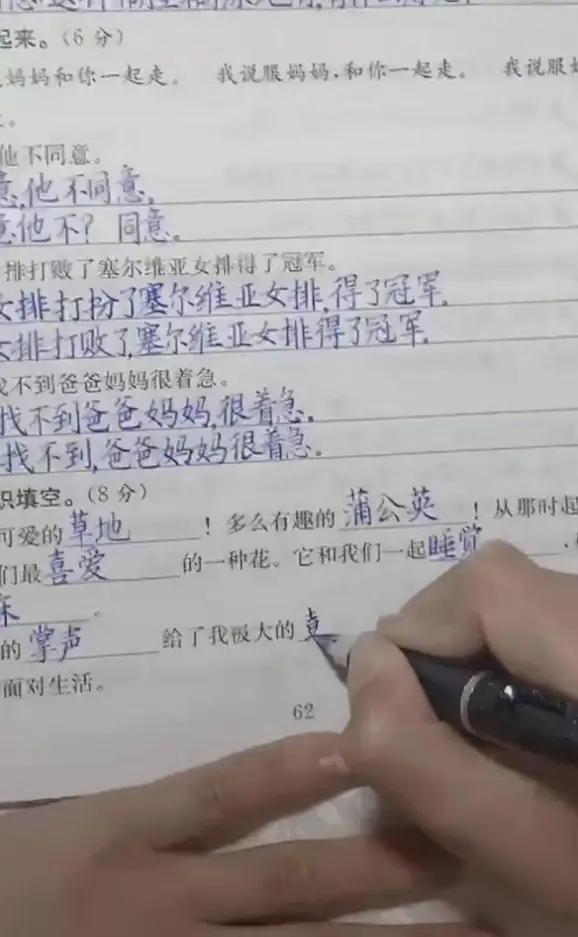 起来。(6 分)
妈妈和你一起走。 我说服妈妈,和你一起走。 我说服
他不同意。
意,他不同意。
意他不? 同意。
排打败了塞尔维亚女排得了冠军。
女排打扮了塞尔维亚女排,得了冠军。
女排打败了,塞尔维亚女排得了冠军。
找不到爸爸妈妈很着急。
找不到爸爸妈妈,很着急。
找不到,爸爸妈妈很着急。
识填空。(8 分)
可爱的草地！多么有趣的蒲公英！从那时起
们最喜爱的一种花。它和我们一起睡觉,
的掌声给了我极大的
面对生活。
62